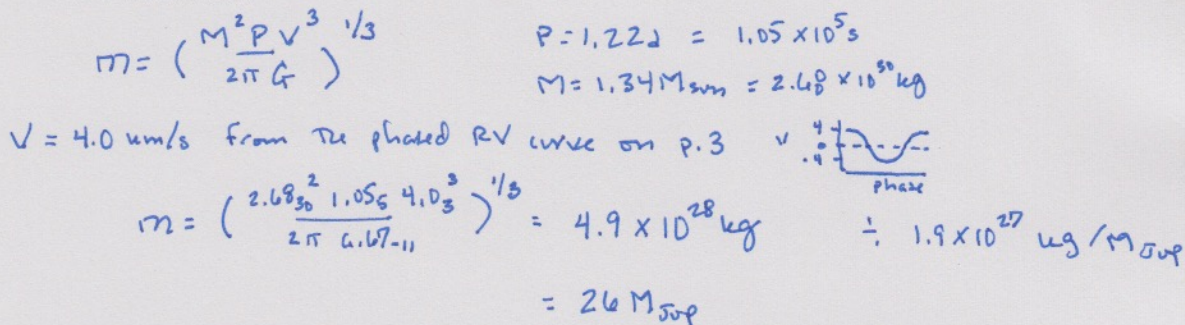 m = ( M² P V³ / 2π G )^1/3 P = 1.22d = 1.05 × 10⁵ s
M = 1.34 Msun = 2.68 × 10³⁰ kg
V = 4.0 km/s from the phased RV curve on p.3 v 4 0 -4 phase
m = ( 2.68₃₀² 1.05₅ 4.0₃³ / 2π 6.67₋₁₁ )^1/3 = 4.9 × 10²⁸ kg ÷ 1.9 × 10²⁷ kg / MJup
= 26 MJup